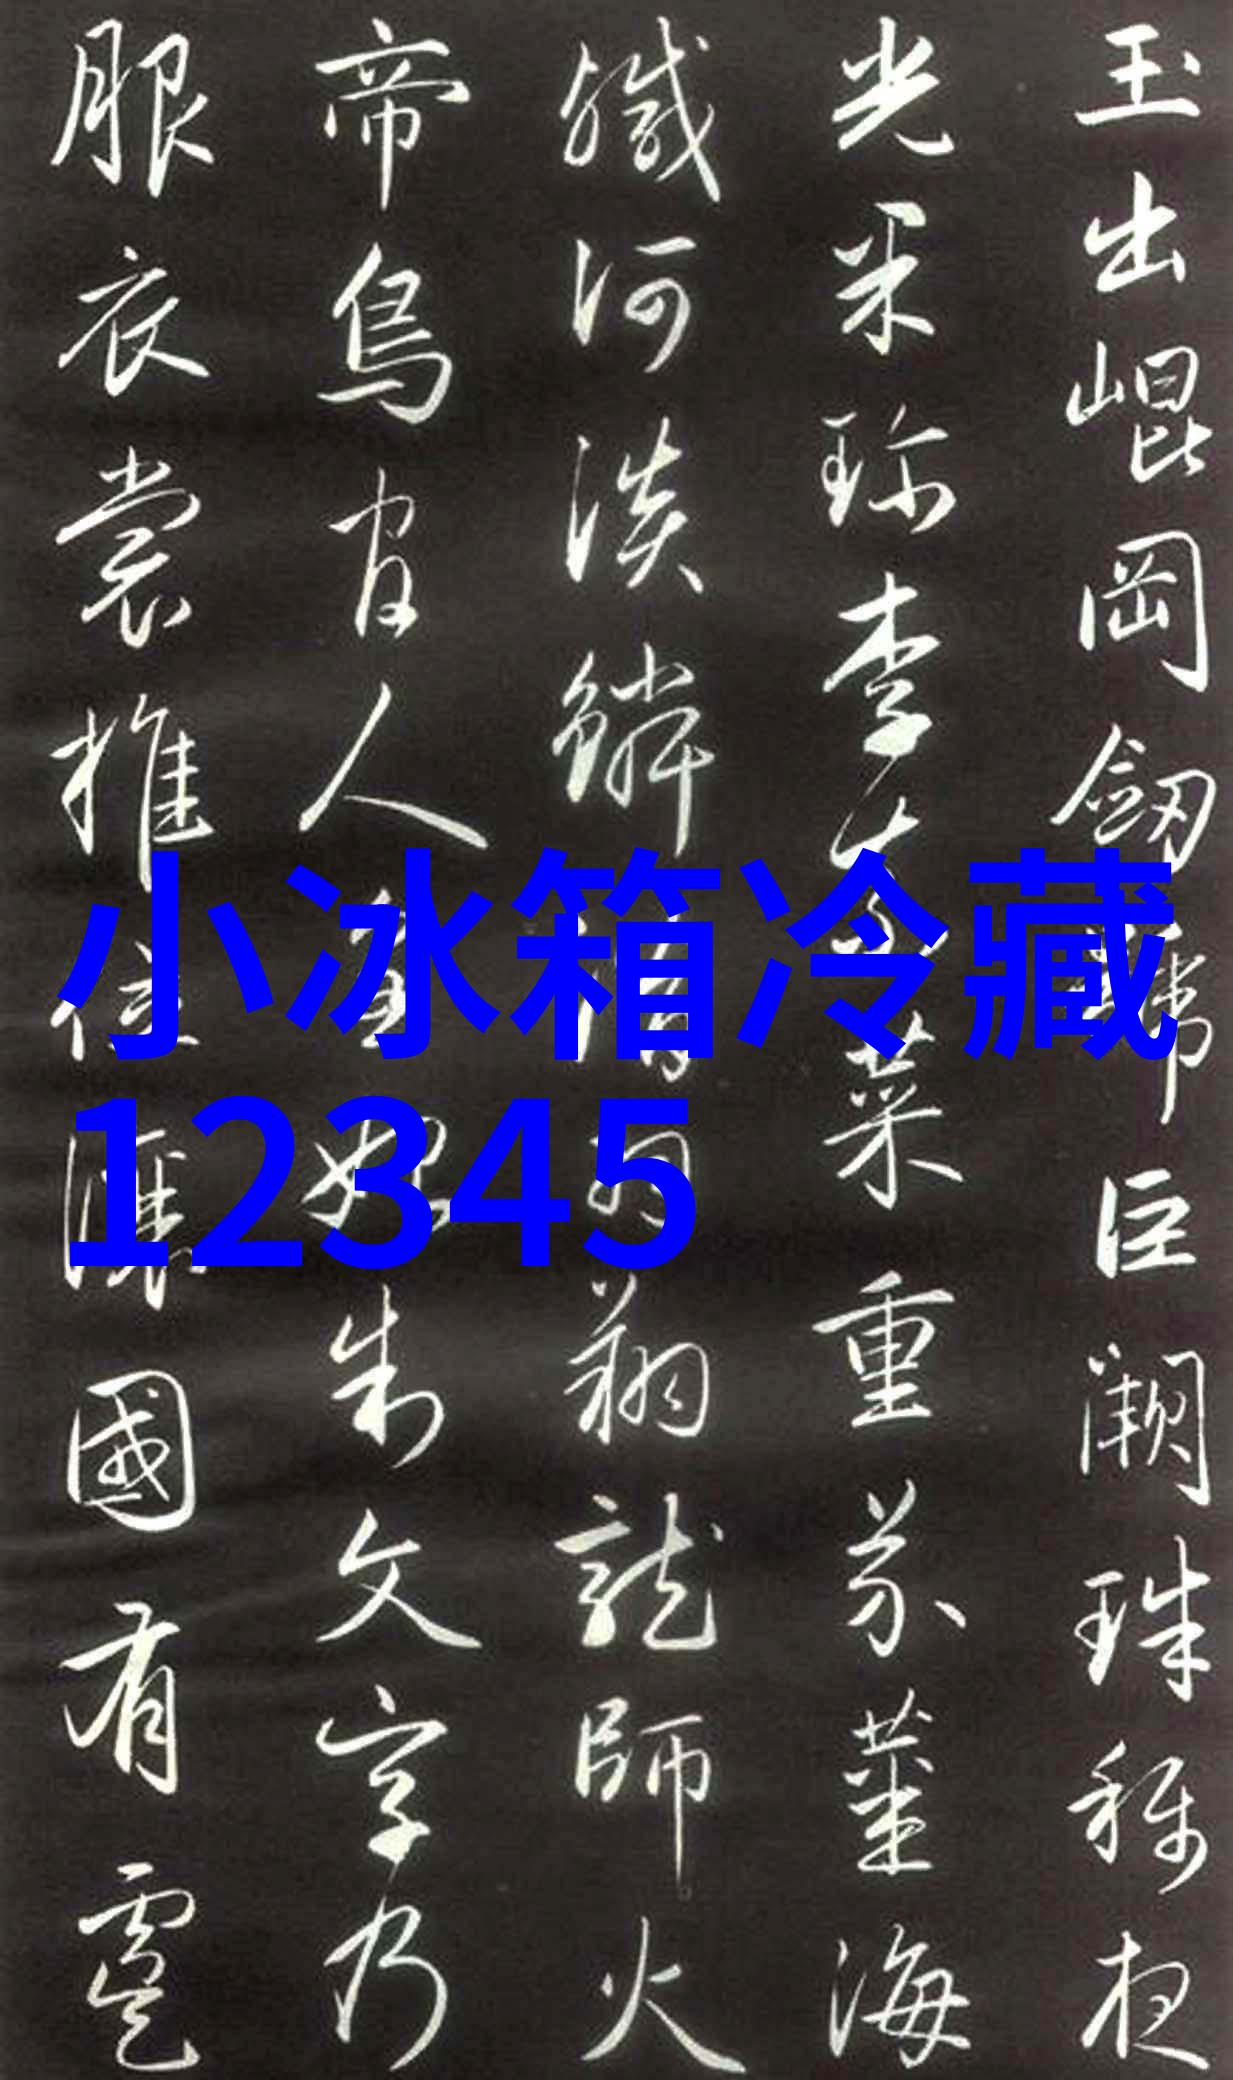 玉出崐岡劒號巨闕珠稱夜
光果珍李柰菜重芥薑海
鹹河淡鱗潛羽翔龍師火
帝鳥官人皇始制文字乃
服衣裳推位讓國有虞
小冰箱冷藏
12345